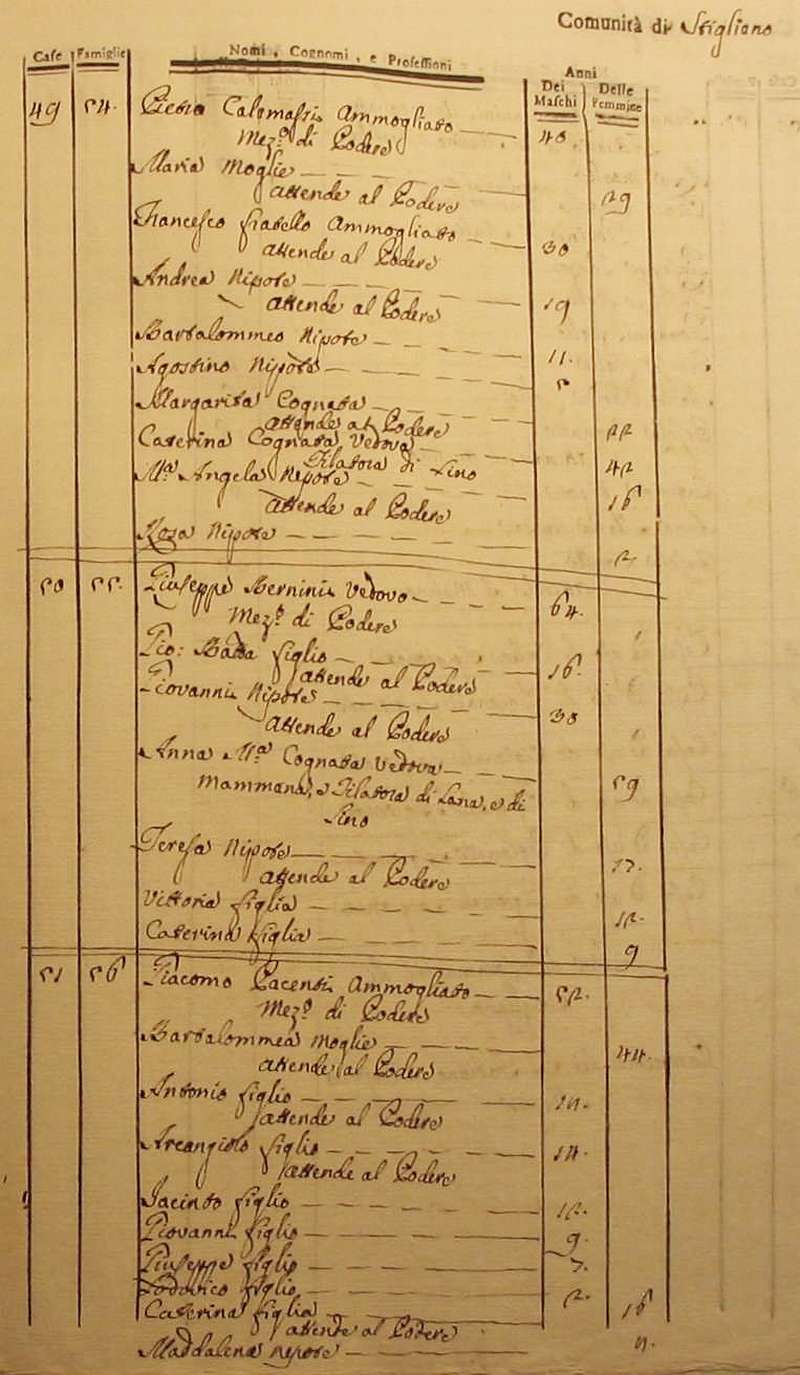 Comunità di Stigliano
Case Famiglie Nomi, Cognomi, e Professioni
Anni
Dei Maschi Delle Femmine
49 54. Ammogliato 40
Mez.º di Podere
Maria Moglie
attende al Podere 29
Francesco fratello Ammogliato
attende al Podere 30
Andrea Nipote
attende al Podere 19
Bartolommeo Nipote 11.
Agostino Nipote 5
Margarita Cognata
attende al Podere 22
Caterina Cognata Vedova
Filatora di Lino 42
M.ª Angela Nipote
attende al Podere 16
Rosa Nipote 2.
50 55. Giuseppe Bernini Vedovo
Mez.º di Podere 64.
Gio: Batta figlio
attende al Podere 16.
Giovanni Nipote
attende al Podere 30
Anna M.ª Cognata Vedova
Mammana, e Filatora di Lana, e di 59
Lino
Teresa Nipote
attende al Podere 17.
Vittoria figlia 12.
Caterina figlia 9
51 56 Giacomo Pacenti Ammogliato 52.
Mez.º di Podere
Bartolommea Moglie 44.
attende al Podere
Antonio figlio
attende al Podere
Arcangiolo figlio 14.
attende al Podere
Jacinto figlio 12.
Giovanni figlio 9
Giuseppe figlio 7.
Lodovico figlio 2.
Caterina figlia 16
attende al Podere
Maddalena nipote